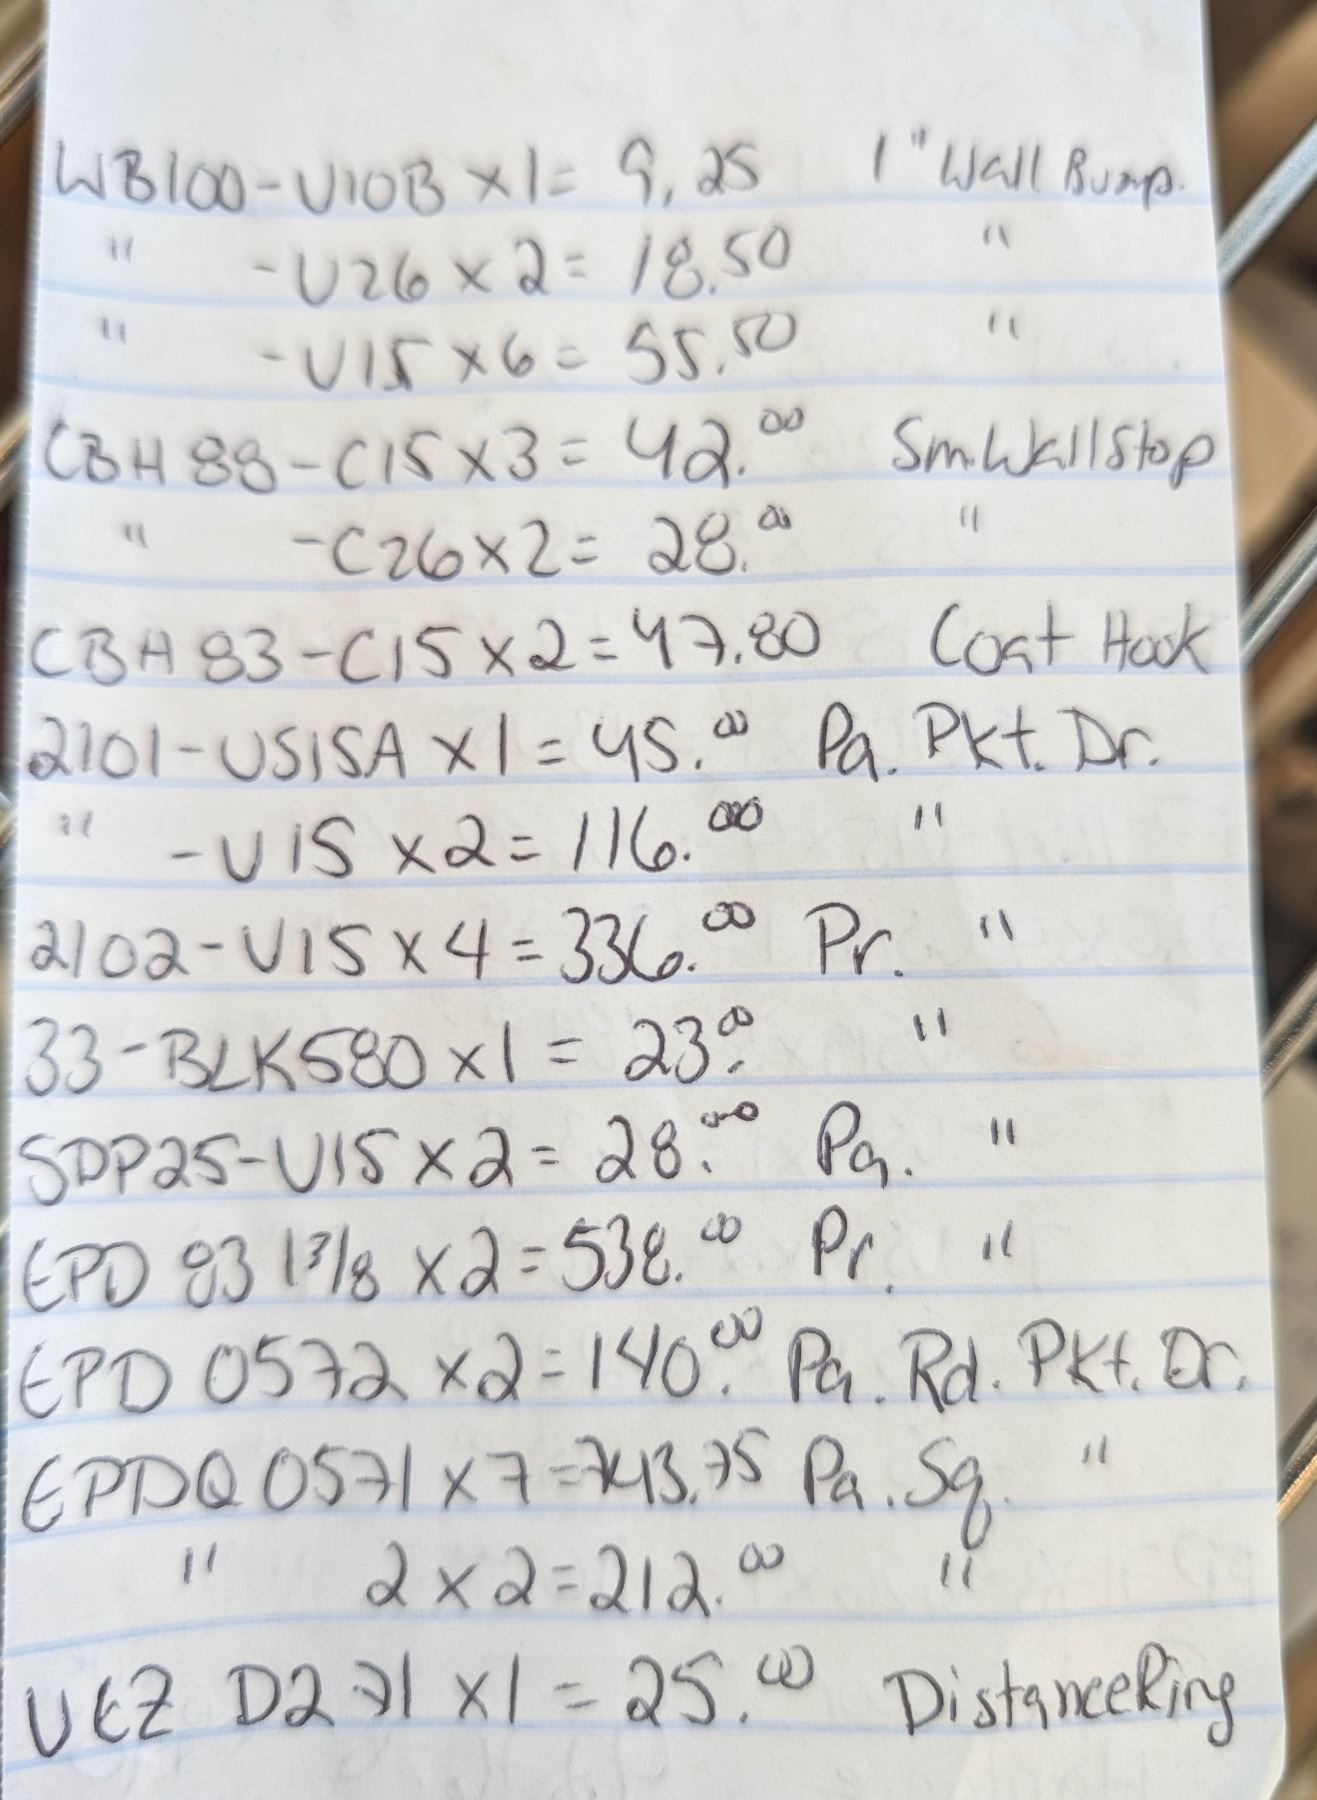 WB100-U10B x1= 9.25 1" Wall Bump.
" -U26 x 2= 18.50 "
" -U15 x 6= 55.50 "
CBH 88-C15 x3= 42.00 Sm. Wall Stop
" -C26 x2= 28.00 "
CBH 83-C15 x2=47.80 Coat Hook
2101-US15A x1=45.00 Pa. Pkt. Dr.
" -U15 x2=116.00 "
2102-U15 x4=336.00 Pr. "
33-BLK580 x1= 23.00 "
SDP25-U15 x2= 28.00 Pa. "
EPD 83 1 3/8 x2=538.00 Pr. "
EPD 0572 x2=140.00 Pa. Rd. Pkt. Dr.
EPDQ 0571 x 7=743.75 Pa. Sq. "
" 2 x2=212.00 "
VEZ D271 x1= 25.00 Distance Ring